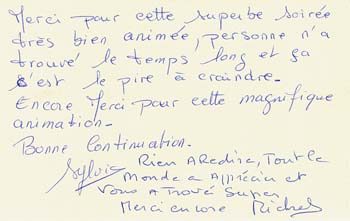 Merci pour cette superbe soirée
très bien animée, personne n'a
trouvé le temps long et ça
c'est le pire à craindre.
Encore Merci pour cette magnifique
animation.
Bonne Continuation.
Sylvie
Rien A Redire, Tout le
Monde a Apprécier et
Vous A Trouvé Super
Merci encore Michel